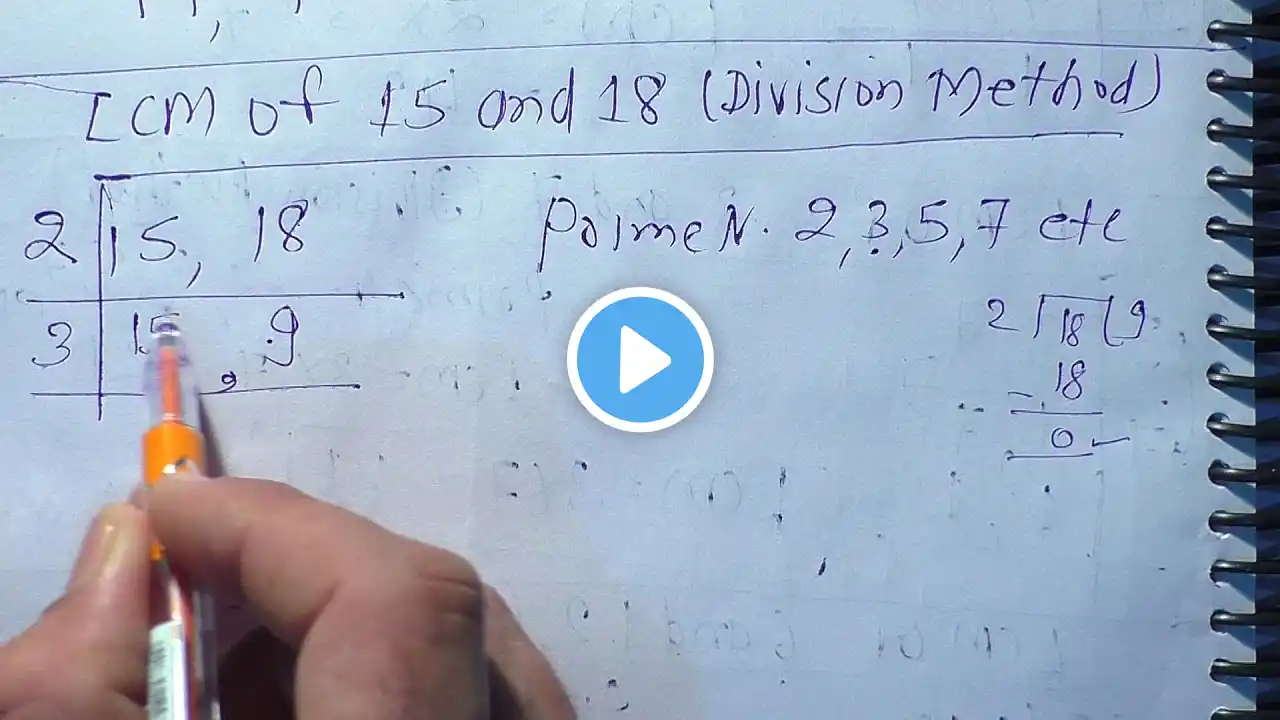 LCM of 15 and 18 (Division Method)
2 | 15, 18
Prime N. 2, 3, 5, 7 etc
3 | 15, 9
2 ) 18 ( 9
- 18
0